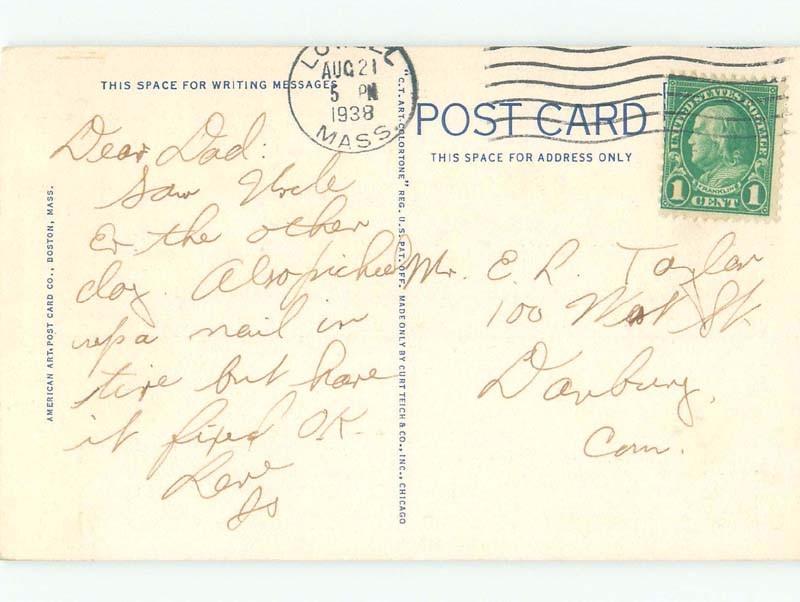 THIS SPACE FOR WRITING MESSAGES
LOWELL
AUG 21
5 PM
1938
MASS.
Dear Dad:
Saw Uncle
Er. the other
day. Also picked
up a nail in
tire but have
it fixed O.K.
Love
AMERICAN ART-POST CARD CO., BOSTON, MASS.
"C.T. ART-COLORTONE" REG. U.S. PAT. OFF. MADE ONLY BY CURT TEICH & CO., INC., CHICAGO
POST CARD
THIS SPACE FOR ADDRESS ONLY
UNITED STATES POSTAGE
FRANKLIN
1 CENT 1
Mr. E. L. Taylor
100 West St.
Danbury,
Conn.